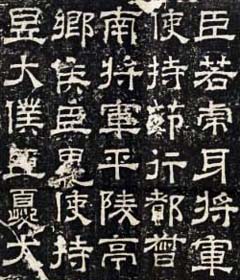 臣若虎牙將軍
使持節行都督
南將軍平陵亭
鄉侯臣晃使持
昱大僕臣夔大